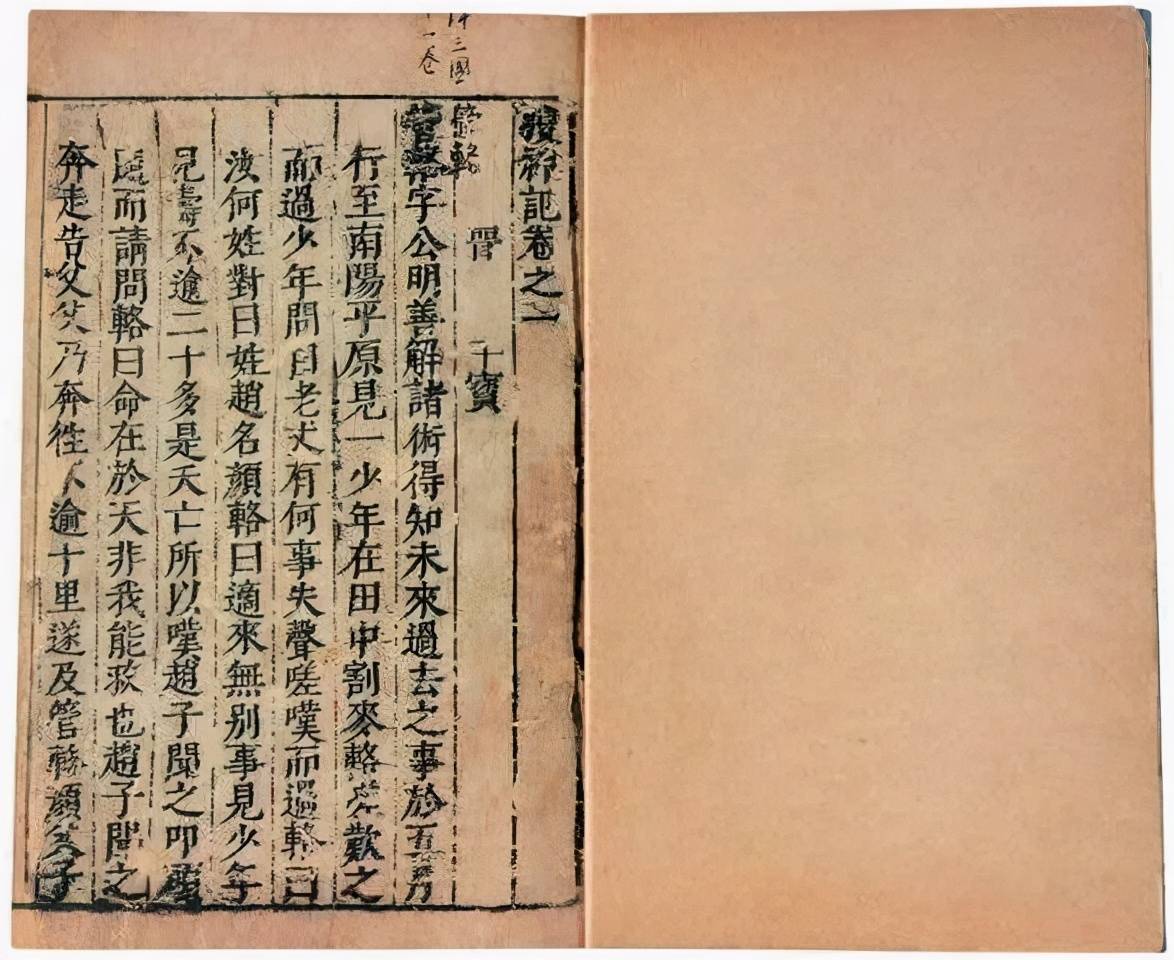 三國
一卷
搜神記卷之一
晉 干寶
管輅
管輅字公明善解諸術得知未來過去之事於五月
行至南陽平原見一少年在田中割麥輅嗟歎之
而過少年問曰老丈有何事失聲嗟嘆而過輅曰
汝何姓對曰姓趙名顔輅曰適來無别事見少年
壽不逾二十多是夭亡所以嘆趙子聞之叩
而請問輅曰命在於天非我能救也趙子聞之
奔走告父父乃奔徃不逾十里遂及管輅顔父子